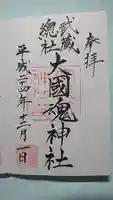 奉拝
武蔵
總社
大國魂神社
平成二十四年十二月一日